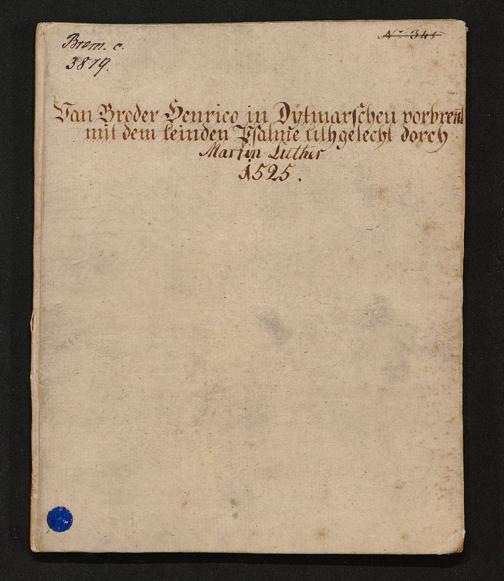 Brem. c.
3879.
N: 341
Van Broder Henrico in Dÿtmarschen vorbrent
mit dem teinden Psalme uthgelecht dorch
Martin Luther
1525.